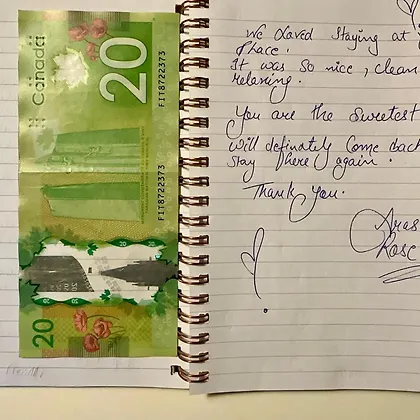 Canada
20
FIT8722373
FIT8722373
20
20
20
We Loved Staying at
Place.
It was So nice, clean
relaxing.
You are the Sweetest
will definately Come back
Stay there again.
Thank You.